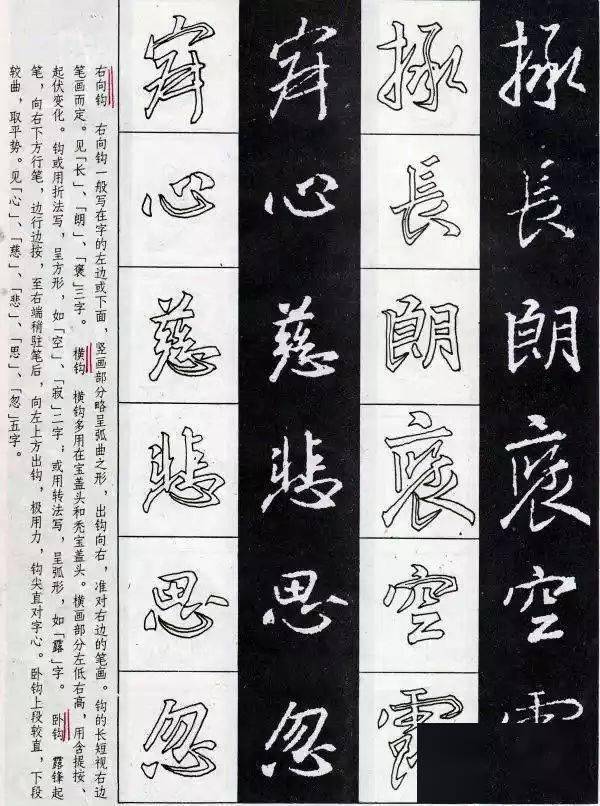 拯長朗褒空
拯長朗褒空
寂心慈悲思忽
寂心慈悲思忽
右向钩　右向钩一般写在字的左边或下面，竖画部分略呈弧曲之形，出钩向右，准对右边的笔画。钩的长短视右边
笔画而定。见「长」、「朗」、「褒」三字。　横钩　横钩多用在宝盖头和秃宝盖头。横画部分左低右高，用含提按、
起伏变化。钩或用折法写，呈方形，如「空」、「寂」二字；或用转法写，呈弧形，如「露」字。　卧钩　露锋起
笔，向右下方行笔，边行边按，至右端稍驻笔后，向左上方出钩，极用力，钩尖直对字心。卧钩上段较直，下段
较曲，取平势。见「心」、「慈」、「悲」、「思」、「忽」五字。